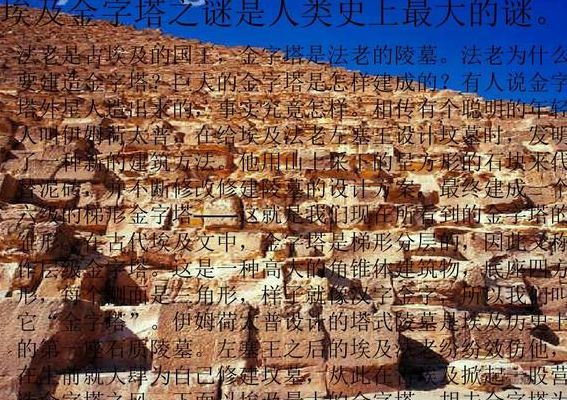 埃及金字塔之谜是人类史上最大的谜。
法老是古埃及的国王，金字塔是法老的陵墓。法老为什么
要建造金字塔？巨大的金字塔是怎样建成的？有人说金字
塔外星人造出来的，事实究竟怎样，相传有个聪明的年轻
人叫伊姆荷太普，在给埃及法老左塞王设计坟墓时，发明
了一种新的建筑方法。他用山上采下的呈方形的石块来代
替泥砖，并不断修改修建陵墓的设计方案，最终建成一个
六级的梯形金字塔——这就是我们现在所看到的金字塔的
雏形。在古代埃及文中，金字塔是梯形分层的，因此又称
作层级金字塔。这是一种高大的角锥体建筑物，底座四方
形，每个侧面是三角形，样子就像汉字金字，所以我们叫
它“金字塔”。伊姆荷太普设计的塔式陵墓是埃及历史上
的第一座石质陵墓。左塞王之后的埃及法老纷纷效仿他，
在生前就大肆为自己修建坟墓，从此在古埃及掀起一股营
造金字塔之风。